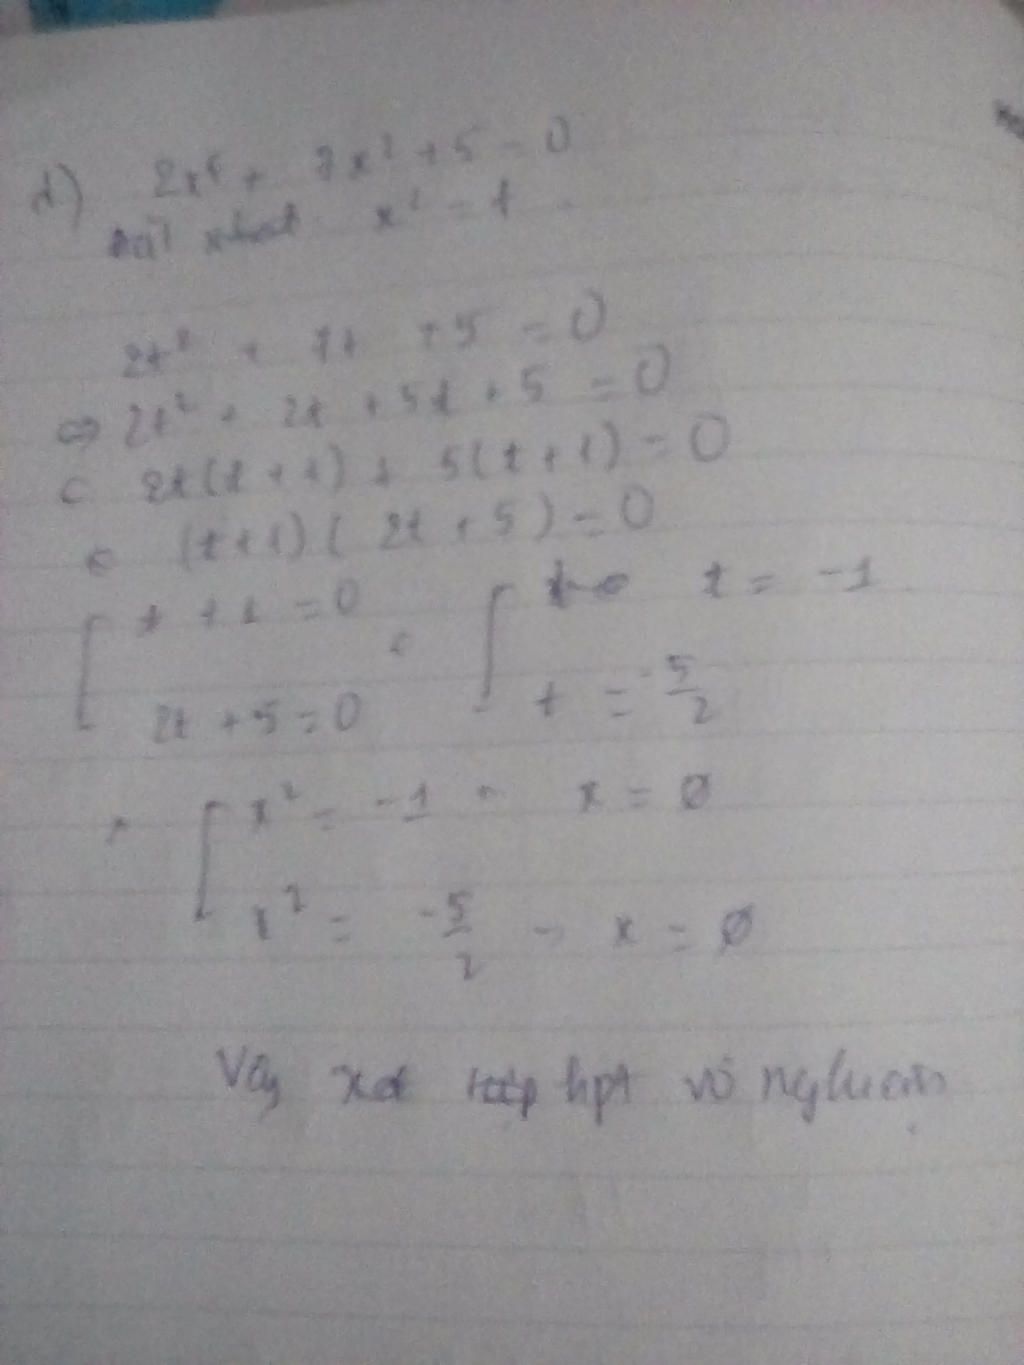 d) 2x⁴ + 7x² + 5 = 0
x² = t
2t² + 7t + 5 = 0
⇔ 2t² + 2t + 5t + 5 = 0
2t(t+1) + 5(t+1) = 0
(t+1)(2t+5) = 0
[ t + 1 = 0 [ t = -1
2t + 5 = 0 t = -5/2
[ x² = -1 → x = ∅
x² = -5/2 → x = ∅
Vậy hpt vô nghiệm